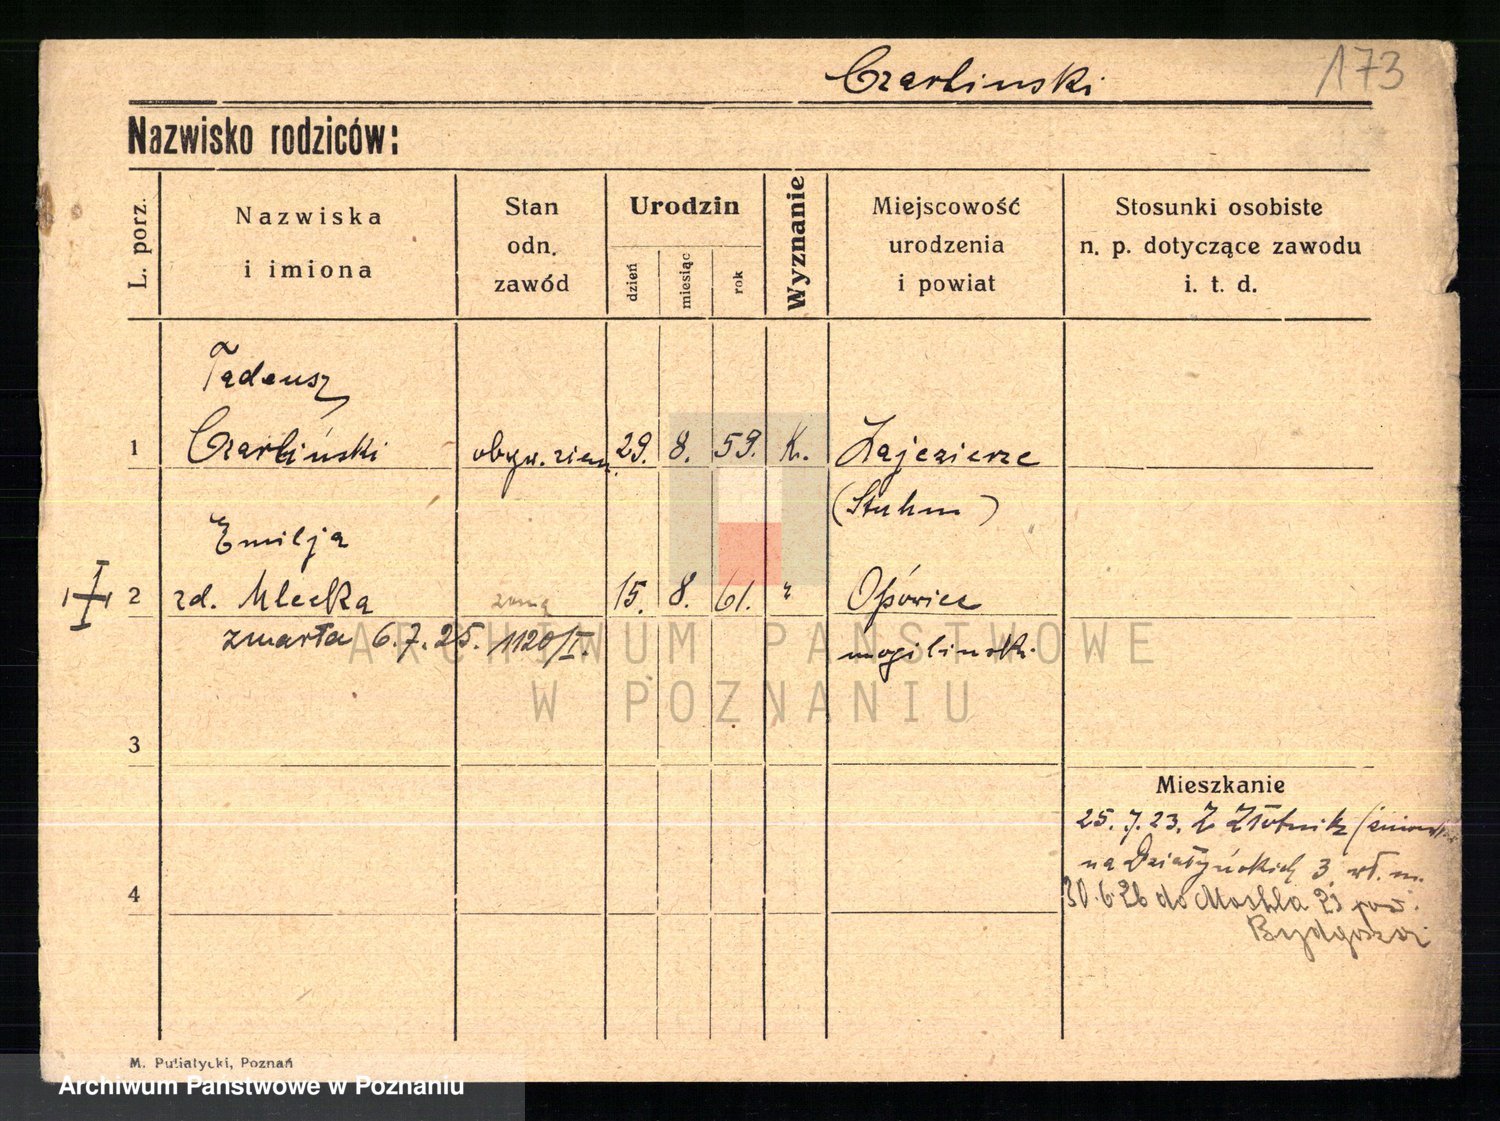 Czarlinski 173
Nazwisko rodziców:
L. porz.
Nazwiska
i imiona
Stan
odn.
zawód
Urodzin
dzień
miesiąc
rok
Wyznanie
Miejscowość
urodzenia
i powiat
Stosunki osobiste
n. p. dotyczące zawodu
i. t. d.
Tadeusz
1 Czarliński obyw. ziem. 29. 8. 59. K. Zajezierze
(Stuhm)
Emilja
2 zd. Mlecka żona 15. 8. 61. "
zmarła 6.7.25. 1120/I. mogilinsk.
3
Mieszkanie
25.7.23. Z Złotnik
na Działyńskich 3. wł. m.
4
30.6.26 do 23 pow.
Bydgoszcz
M. Putiatycki, Poznań
ARCHIWUM PAŃSTWOWE
W POZNANIU
Archiwum Państwowe w Poznaniu